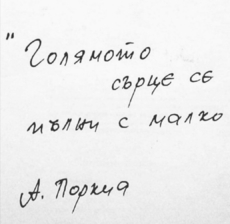 "Голямото
сърце се
пълни с малко
А. Порчиа